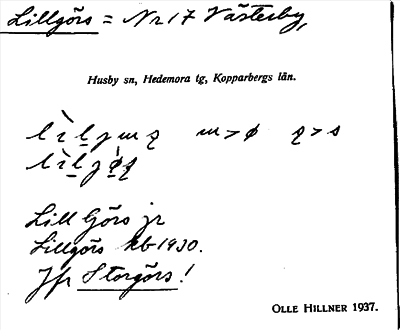 Lillgörs = Nr 17 Västerby,
Husby sn, Hedemora tg, Kopparbergs län.
Lill Görs jr
Lillgörs kb 1930.
Jfr Storgörs!
OLLE HILLNER 1937.